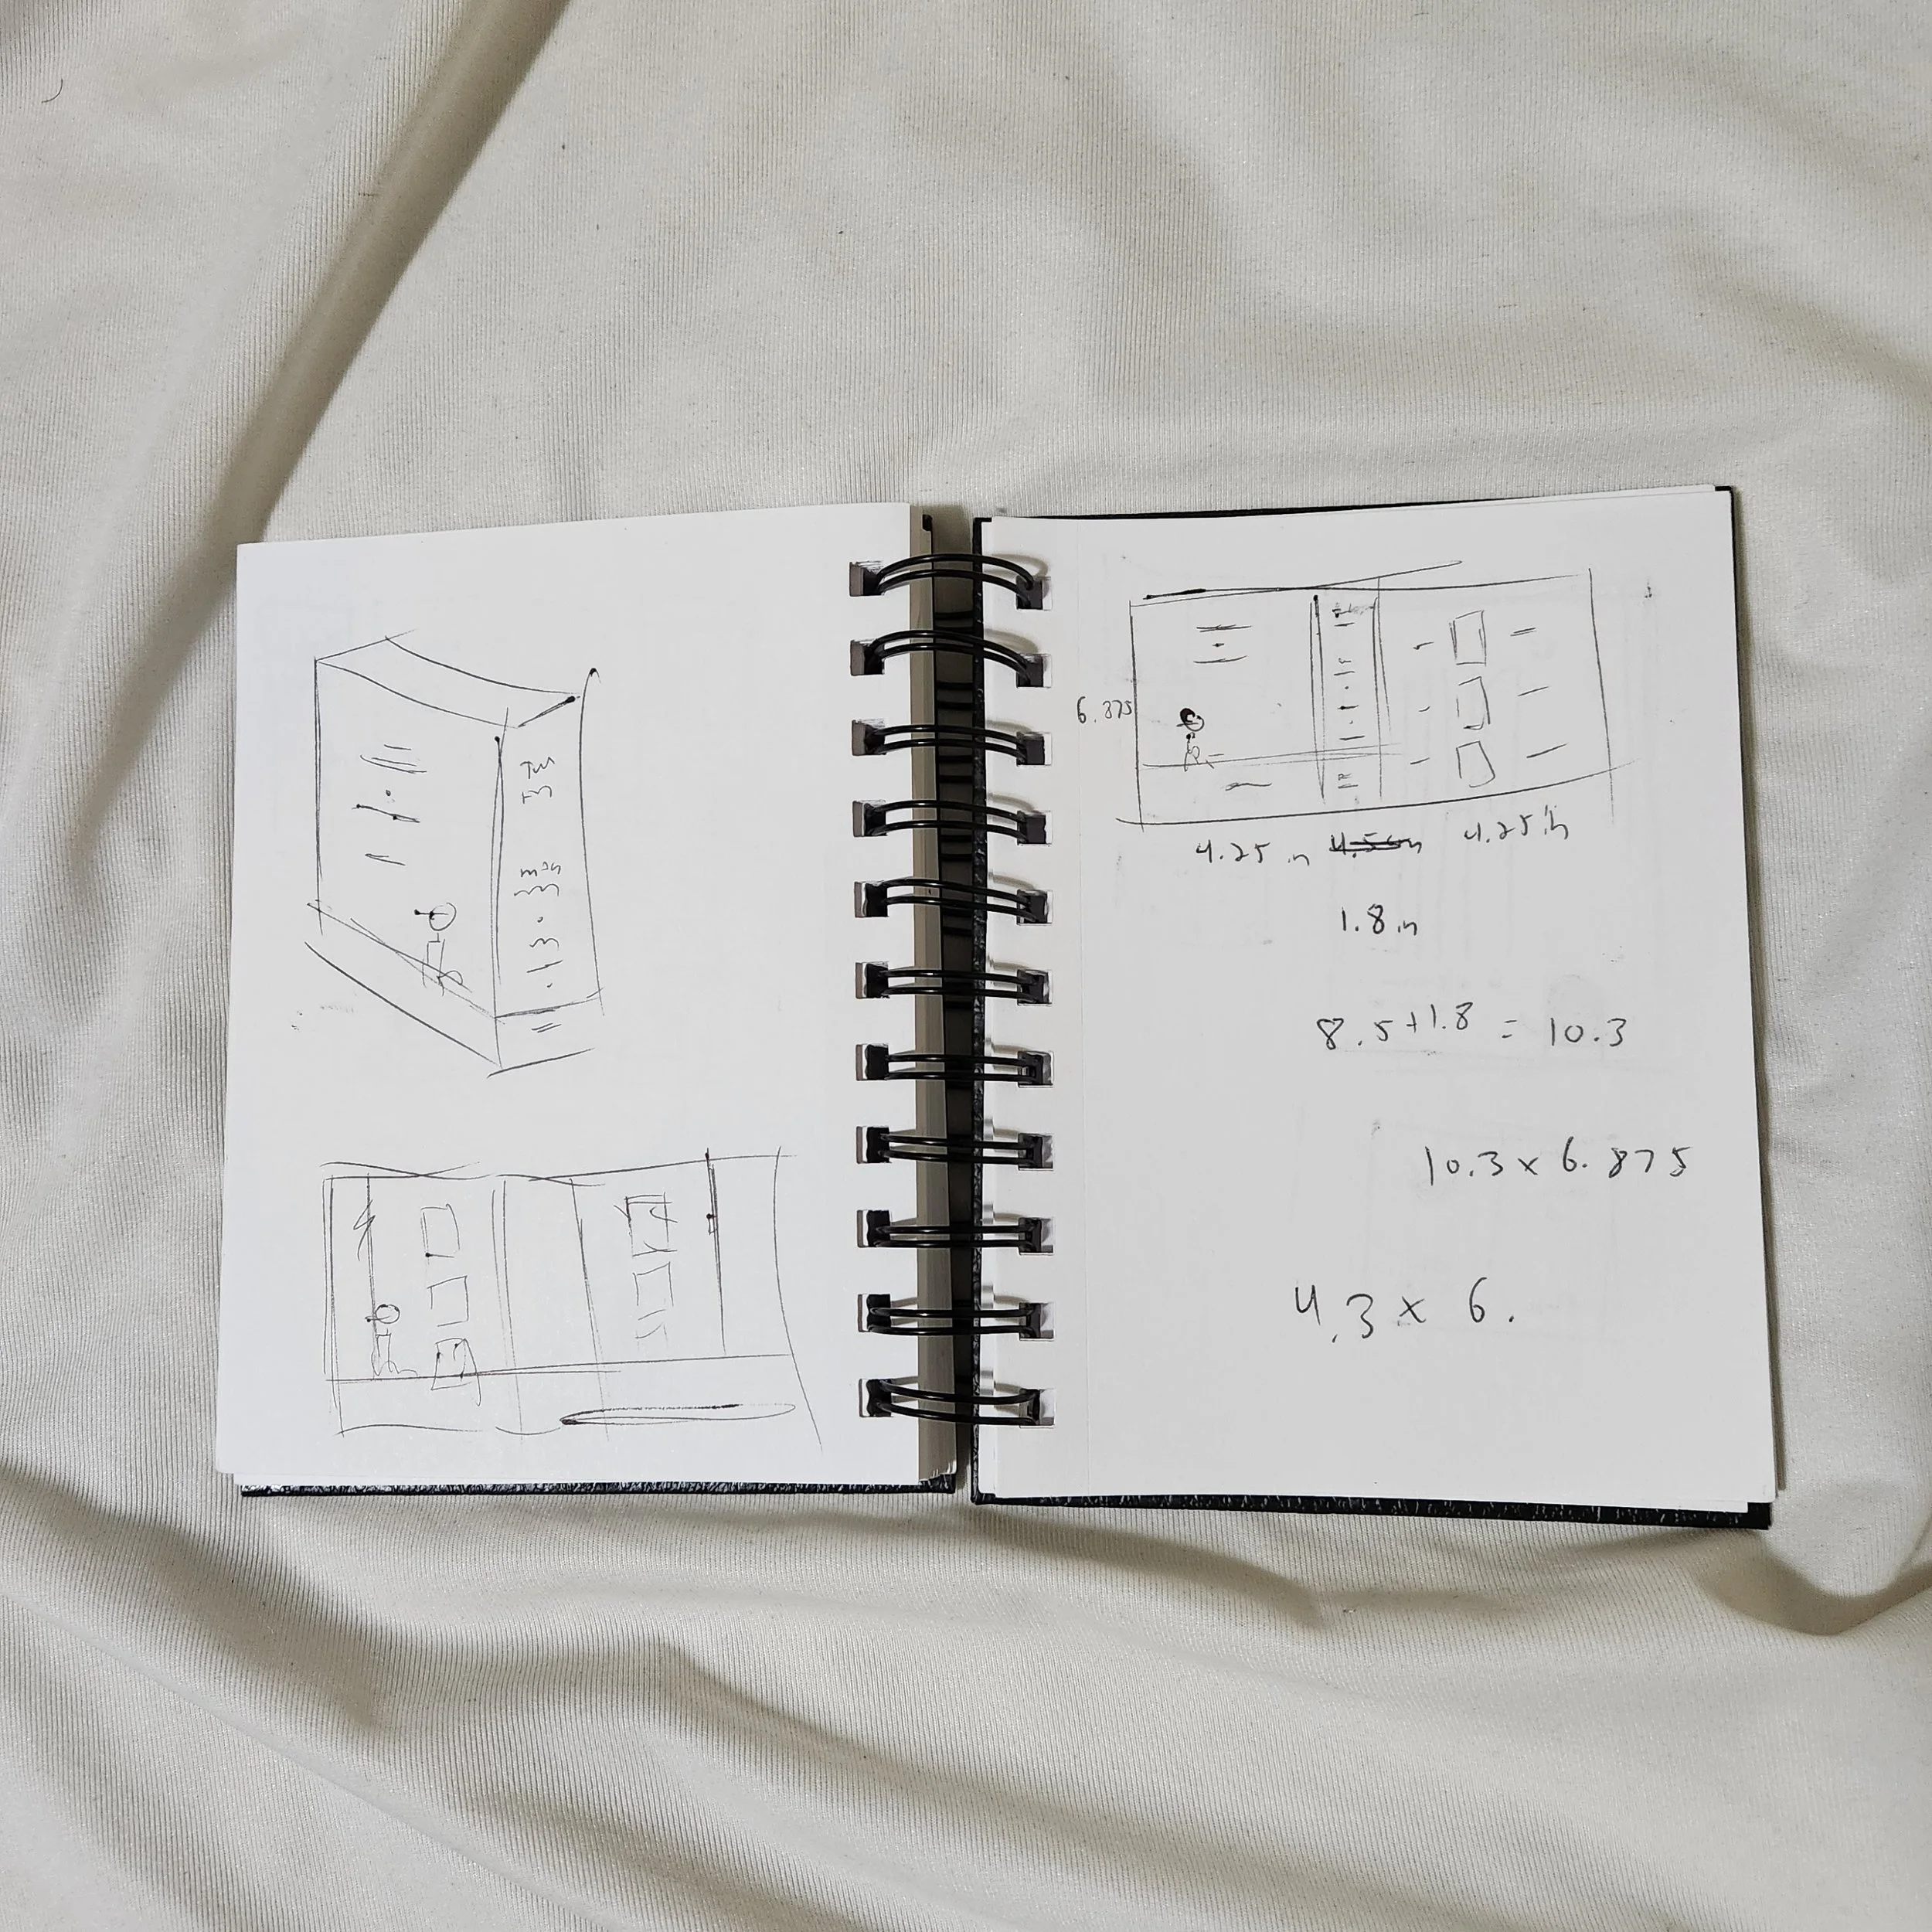 6.875
4.25 in 4.25 in
1.8 in
8.5+1.8 = 10.3
10.3 x 6.875
4.3 x 6.